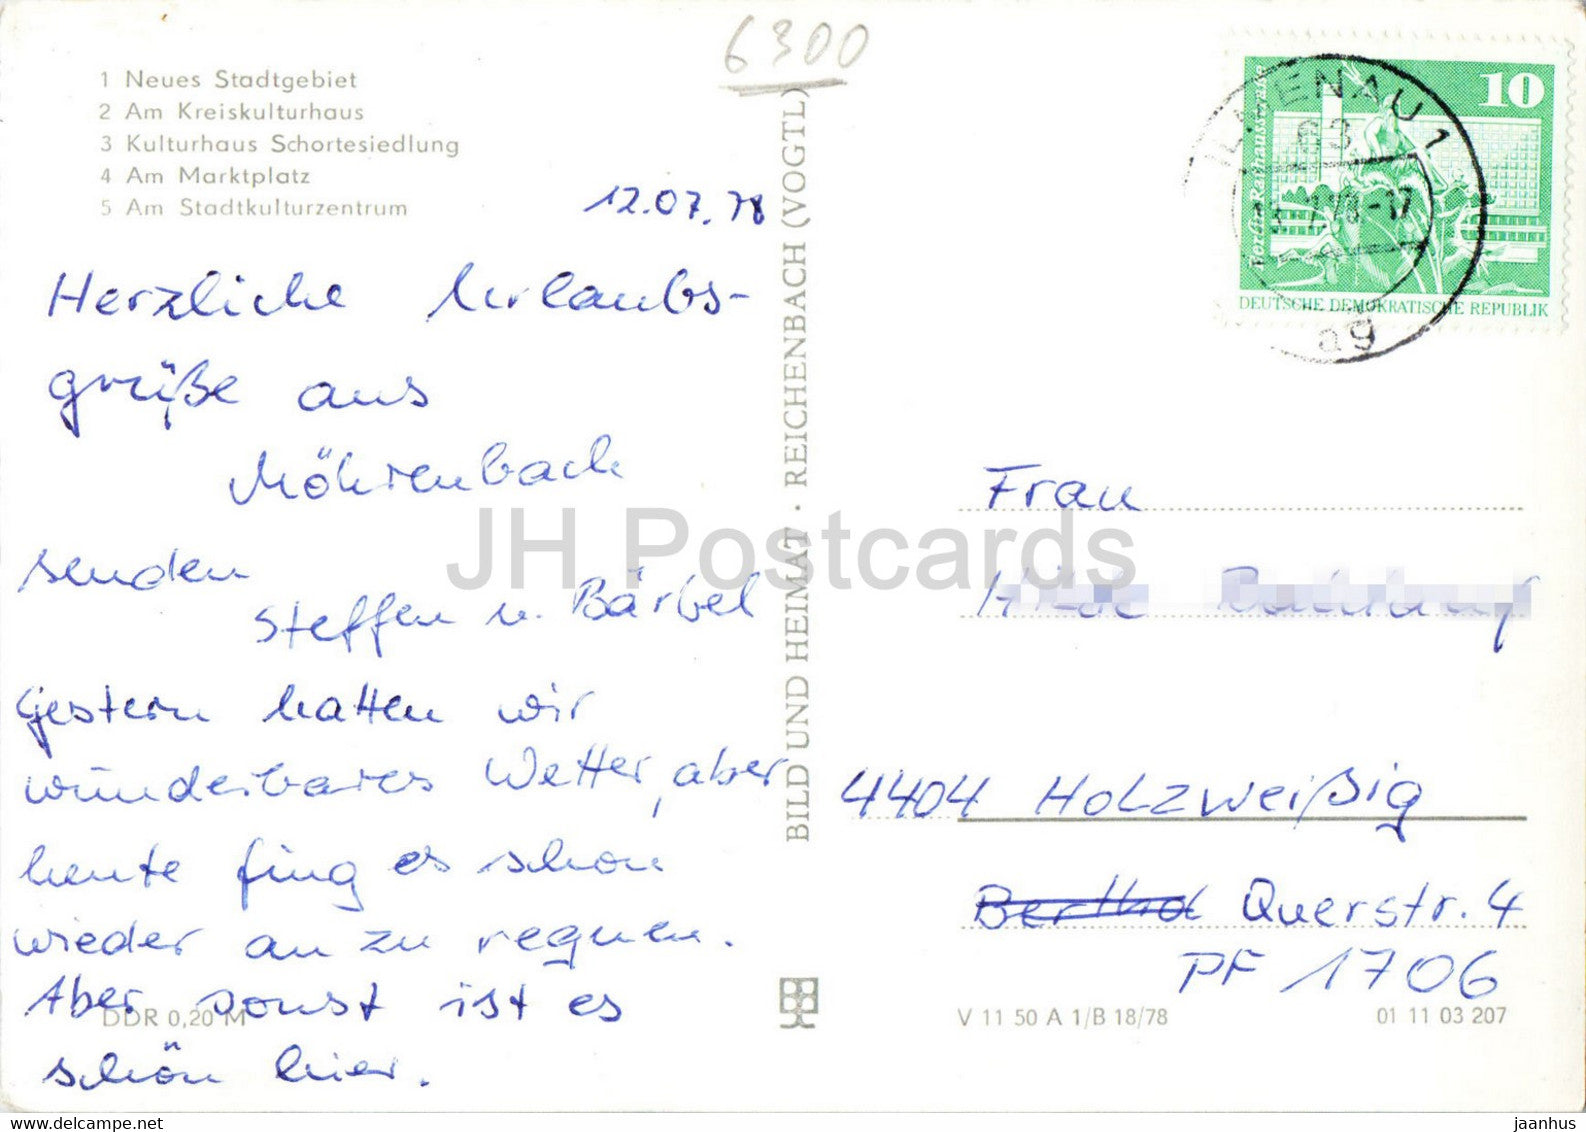 6300
1 Neues Stadtgebiet
2 Am Kreiskulturhaus
3 Kulturhaus Schortesiedlung
4 Am Marktplatz
5 Am Stadtkulturzentrum
12.07.78
Herzliche Urlaubs-
grüße aus
Möhrenbach
senden
Steffen u. Bärbel
Gestern hatten wir
wunderbares Wetter, aber
heute fing es schon
wieder an zu regnen.
Aber sonst ist es
schön hier.
DDR 0,20 M
BILD UND HEIMAT · REICHENBACH (VOGTL)
10
Berlin Rathausstraße
DEUTSCHE DEMOKRATISCHE REPUBLIK
ILMENAU 1
63
ag
Frau
Hilde
4404 Holzweißig
Berthol Querstr. 4
PF 1706
V 11 50 A 1/B 18/78
01 11 03 207
JH Postcards
jaanhus
https://www.delcampe.net